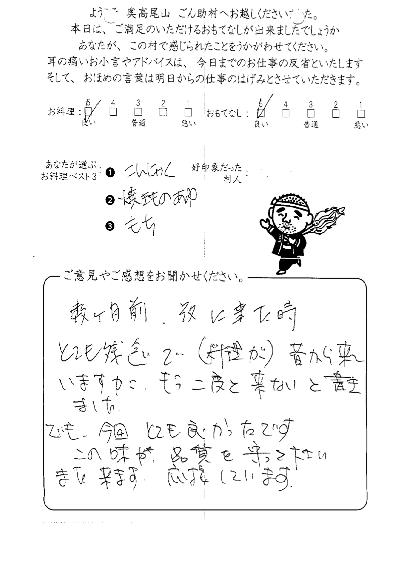 ようこそ 奥高尾山 ごん助村へお越しくださいました。
本日は、ご満足のいただけるおもてなしが出来ましたでしょうか
あなたが、この村で感じられたことをうかがわせてください。
耳の痛いお小言やアドバイスは、今日までのお仕事の反省といたします
そして、おほめの言葉は明日からの仕事のはげみとさせていただきます。
お料理: 5 4 3 2 1 おもてなし: 5 4 3 2 1
良い 普通 悪い 良い 普通 悪い
あなたが選ぶ
お料理ベスト3:
❶ こんにゃく
❷
❸ もち
好印象だった
別人:
ご意見やご感想をお聞かせください。
数ヶ月前、夜に来た時
とても残念で(料理が)昔から来て
いますが、もう二度と来ないと書き
ました
でも、今回とても良かったです
この味が、品質を守ってください
また来ます。応援しています。